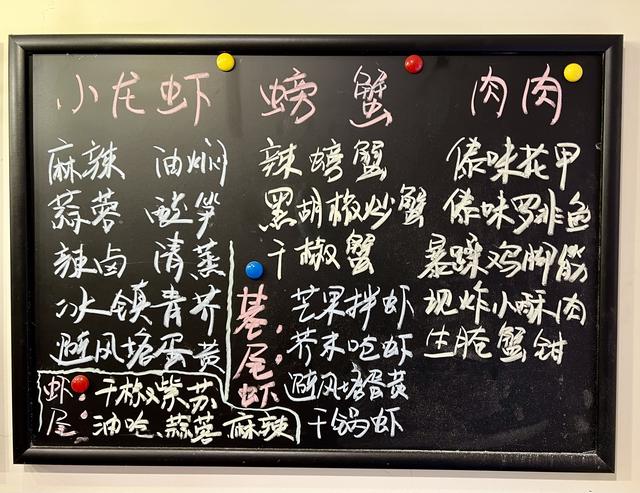 小龙虾
麻辣 油焖
蒜蓉 酸笋
辣卤 清蒸
冰镇青芥
避风塘蛋黄
虾尾：干椒紫苏
油呛、蒜蓉 麻辣
螃蟹
辣螃蟹
黑胡椒炒蟹
干椒蟹
基尾虾
芒果拌虾
芥末呛虾
避风塘蛋黄
干锅虾
肉肉
傣味花甲
傣味罗非鱼
暴躁鸡脚筋
现炸小酥肉
生腌蟹钳